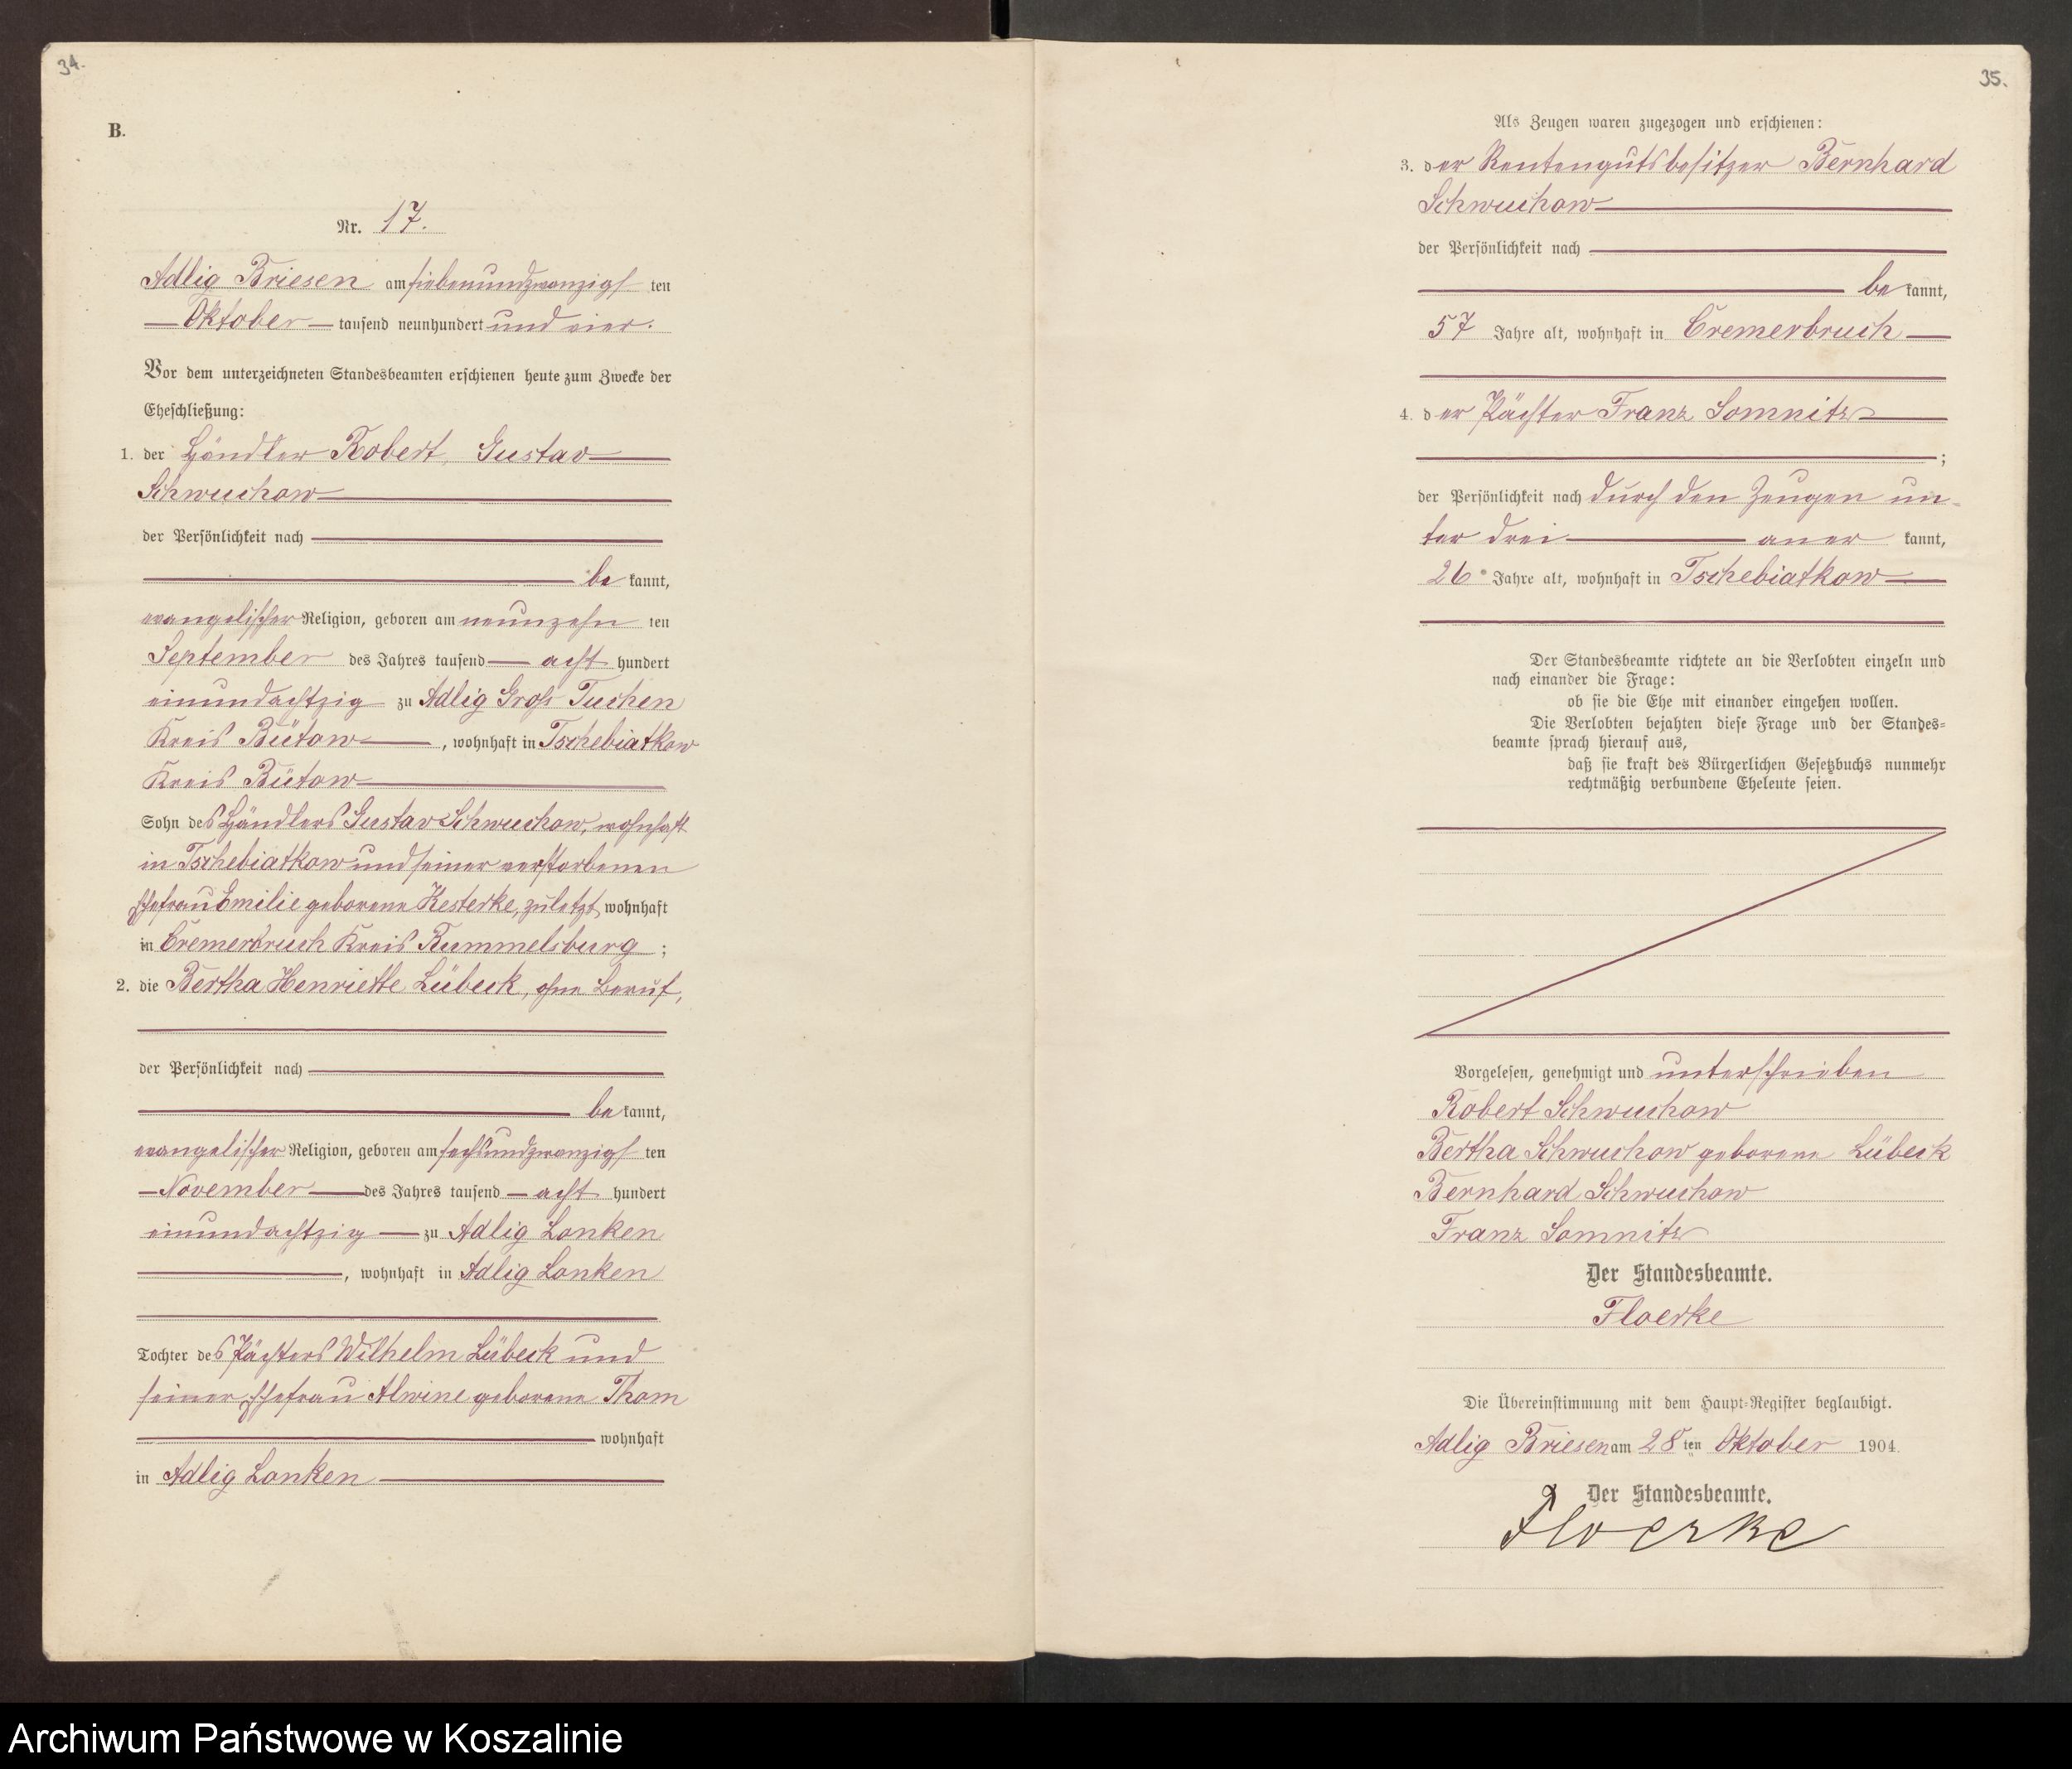 34.
B.
Nr. 17.
Adlig Briesen am siebenundzwanzigsten
Oktober tausend neunhundert und vier.
Vor dem unterzeichneten Standesbeamten erschienen heute zum Zwecke der
Eheschließung:
1. der Händler Robert, Gustav
Schwuchow
der Persönlichkeit nach
bekannt,
evangelischer Religion, geboren am neunzehnten
September des Jahres tausend acht hundert
einundachtzig zu Adlig Groß Tuchen
Kreis Bütow, wohnhaft in Tschebiatkow
Kreis Bütow
Sohn des Händlers Gustav Schwuchow, wohnhaft
in Tschebiatkow und seiner verstorbenen
Ehefrau Emilie geborene Kesterke, zuletzt wohnhaft
in Cremerbruch Kreis Rummelsburg;
2. die Bertha Henriette Lübeck, ohne Beruf,
der Persönlichkeit nach
bekannt,
evangelischer Religion, geboren am sechsundzwanzigsten
November des Jahres tausend acht hundert
einundachtzig zu Adlig Lonken
, wohnhaft in Adlig Lonken
Tochter des Pächters Wilhelm Lübeck und
seiner Ehefrau Alwine geborene Thom
wohnhaft
in Adlig Lonken
35.
Als Zeugen waren zugezogen und erschienen:
3. der Rentengutsbesitzer Bernhard
Schwuchow
der Persönlichkeit nach
bekannt,
57 Jahre alt, wohnhaft in Cremerbruch
4. der Pächter Franz Somnitz
;
der Persönlichkeit nach durch den Zeugen un-
ter drei anerkannt,
26 Jahre alt, wohnhaft in Tschebiatkow
Der Standesbeamte richtete an die Verlobten einzeln und
nach einander die Frage:
ob sie die Ehe mit einander eingehen wollen.
Die Verlobten bejahten diese Frage und der Standes-
beamte sprach hierauf aus,
daß sie kraft des Bürgerlichen Gesetzbuchs nunmehr
rechtmäßig verbundene Eheleute seien.
Vorgelesen, genehmigt und unterschrieben
Robert Schwuchow
Bertha Schwuchow geborene Lübeck
Bernhard Schwuchow
Franz Somnitz
Der Standesbeamte.
Floerke
Die Übereinstimmung mit dem Haupt-Register beglaubigt.
Adlig Briesen am 28ten Oktober 1904.
Der Standesbeamte.
Floerke
Archiwum Państwowe w Koszalinie